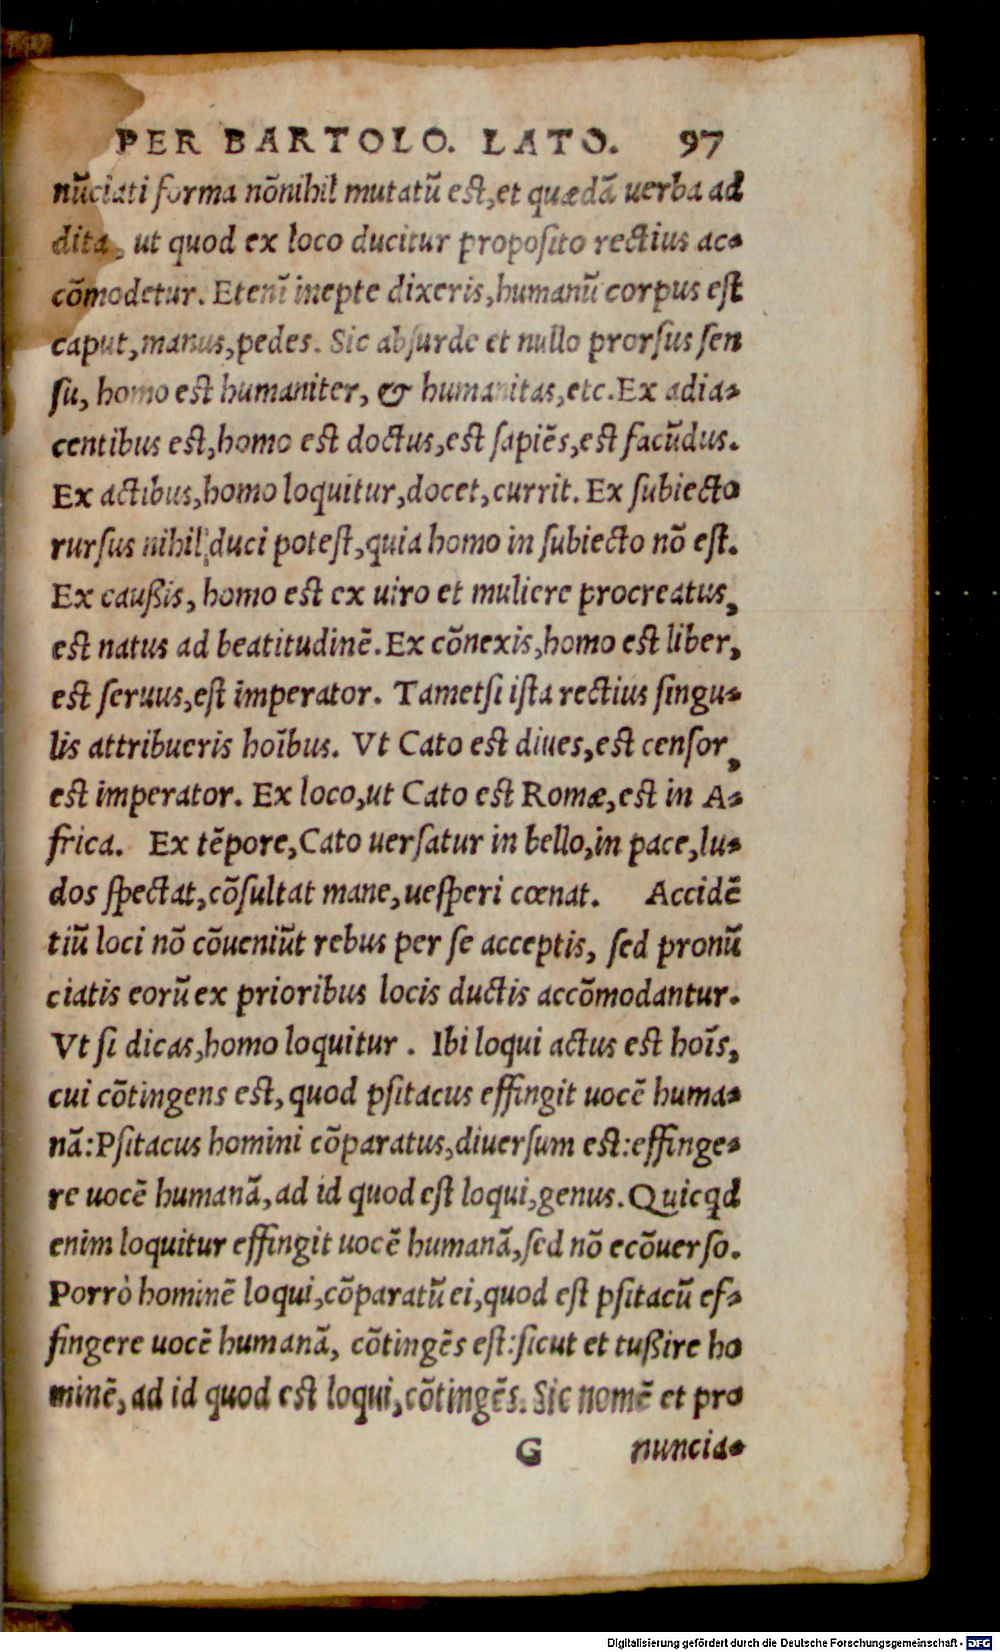 PER BARTOLO. LATO. 97
nũciati forma nõnihil mutatũ est, et quædã uerba ad
dita, ut quod ex loco ducitur proposito rectius ac-
cõmodetur. Etenĩ inepte dixeris, humanũ corpus est
caput, manus, pedes. Sic absurde et nullo prorsus sen
su, homo est humaniter, & humanitas, etc. Ex adia-
centibus est, homo est doctus, est sapiẽs, est facũdus.
Ex actibus, homo loquitur, docet, currit. Ex subiecto
rursus nihil duci potest, quia homo in subiecto nõ est.
Ex caußis, homo est ex uiro et muliere procreatus,
est natus ad beatitudinẽ. Ex cõnexis, homo est liber,
est seruus, est imperator. Tametsi ista rectius singu-
lis attribueris hoĩbus. Vt Cato est diues, est censor,
est imperator. Ex loco, ut Cato est Romæ, est in A-
frica. Ex tẽpore, Cato uersatur in bello, in pace, lu-
dos spectat, cõsultat mane, uesperi cœnat. Accidẽ
tiũ loci nõ cõueniũt rebus per se acceptis, sed pronũ
ciatis eorũ ex prioribus locis ductis accõmodantur.
Vt si dicas, homo loquitur. Ibi loqui actus est hoĩs,
cui cõtingens est, quod psitacus effingit uocẽ huma-
nã: Psitacus homini cõparatus, diuersum est: effinge-
re uocẽ humanã, ad id quod est loqui, genus. Quicqd
enim loquitur effingit uocẽ humanã, sed nõ ecõuerso.
Porrò hominẽ loqui, cõparatũ ei, quod est psitacũ ef-
fingere uocẽ humanã, cõtingẽs est: sicut et tußire ho
minẽ, ad id quod est loqui, cõtingẽs. Sic nomẽ et pro
G nuncia-
Digitalisierung gefördert durch die Deutsche Forschungsgemeinschaft - DFG